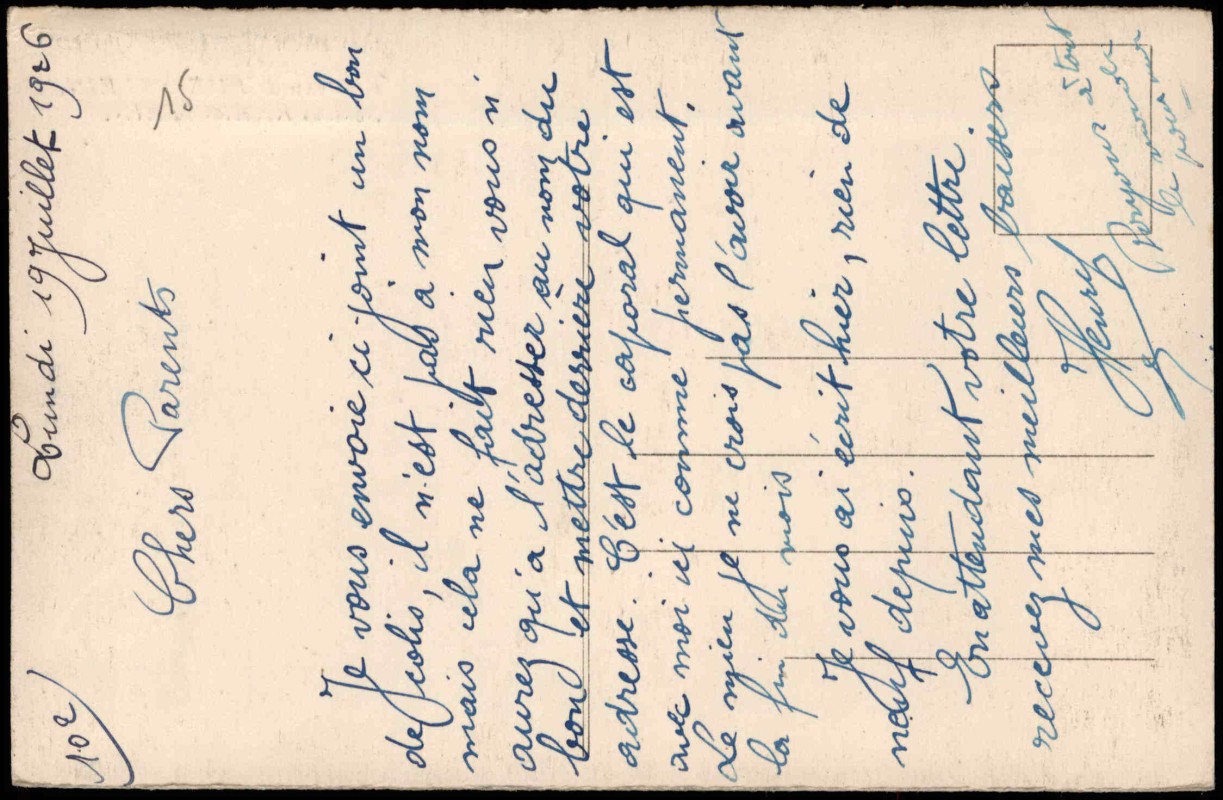 102)
Lundi 19 Juillet 1926
Chers Parents
Je vous envoie ci joint un bon
de colis, il n'est pas a mon nom
mais cela ne fait rien vous n'
aurez qu'a l'adresser au nom du
bon et mettre derrière votre
adresse. C'est le caporal qui est
avec moi ici comme permanent.
Le mien je ne crois pas l'avoir avant
la fin du mois
Je vous ai écrit hier, rien de
neuf depuis.
En attendant votre lettre.
recevez mes meilleurs baisers
Henry
Bonjour à tout
le monde